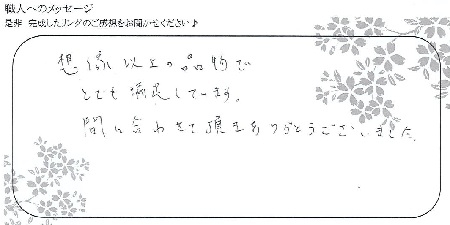 職人へのメッセージ
是非 完成したリングのご感想をお聞かせください♪
想像以上の品物で
とても満足しています。
間に合わせて頂きありがとうございました。